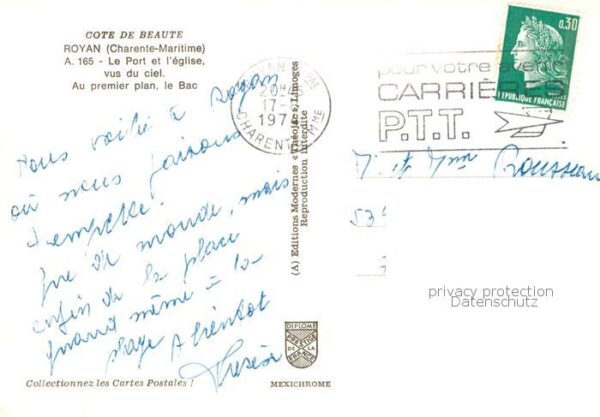 COTE DE BEAUTE
ROYAN (Charente-Maritime)
A. 165 - Le Port et l'église,
vus du ciel.
Au premier plan, le Bac
Nous voilà à Royan
où nous faisons
trempette.
que de monde, mais
enfin de la place
quand même à la
plage A bientôt
(A) Editions Modernes « Théojac », Limoges
Reproduction Interdite
DIPLOME
PRESTIGE
DE LA
FRANCE
MEXICHROME
Collectionnez les Cartes Postales !
ROYAN
17-
197
CHARENTE Mme
pour votre avenir
CARRIÈRES
P.T.T.
0,30
REPUBLIQUE FRANÇAISE
M. et Mme Rousseau
53
privacy protection
Datenschutz